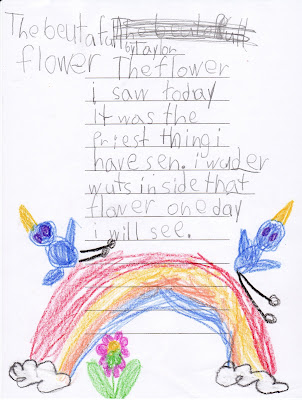 The beutaful
by Taylon
flower
The flower
i saw today
it was the
priest thing i
have sen. i wuder
wuts in side that
flower one day
i will see.